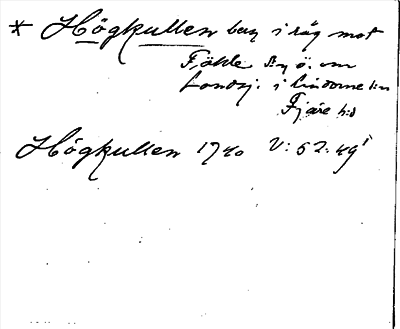 * Högkullen berg i råg mot
Fjöhle s:n ö. om
Landsv. i Lindome s:n
Fjäre h:d
Högkullen 1740 V: 52: 49